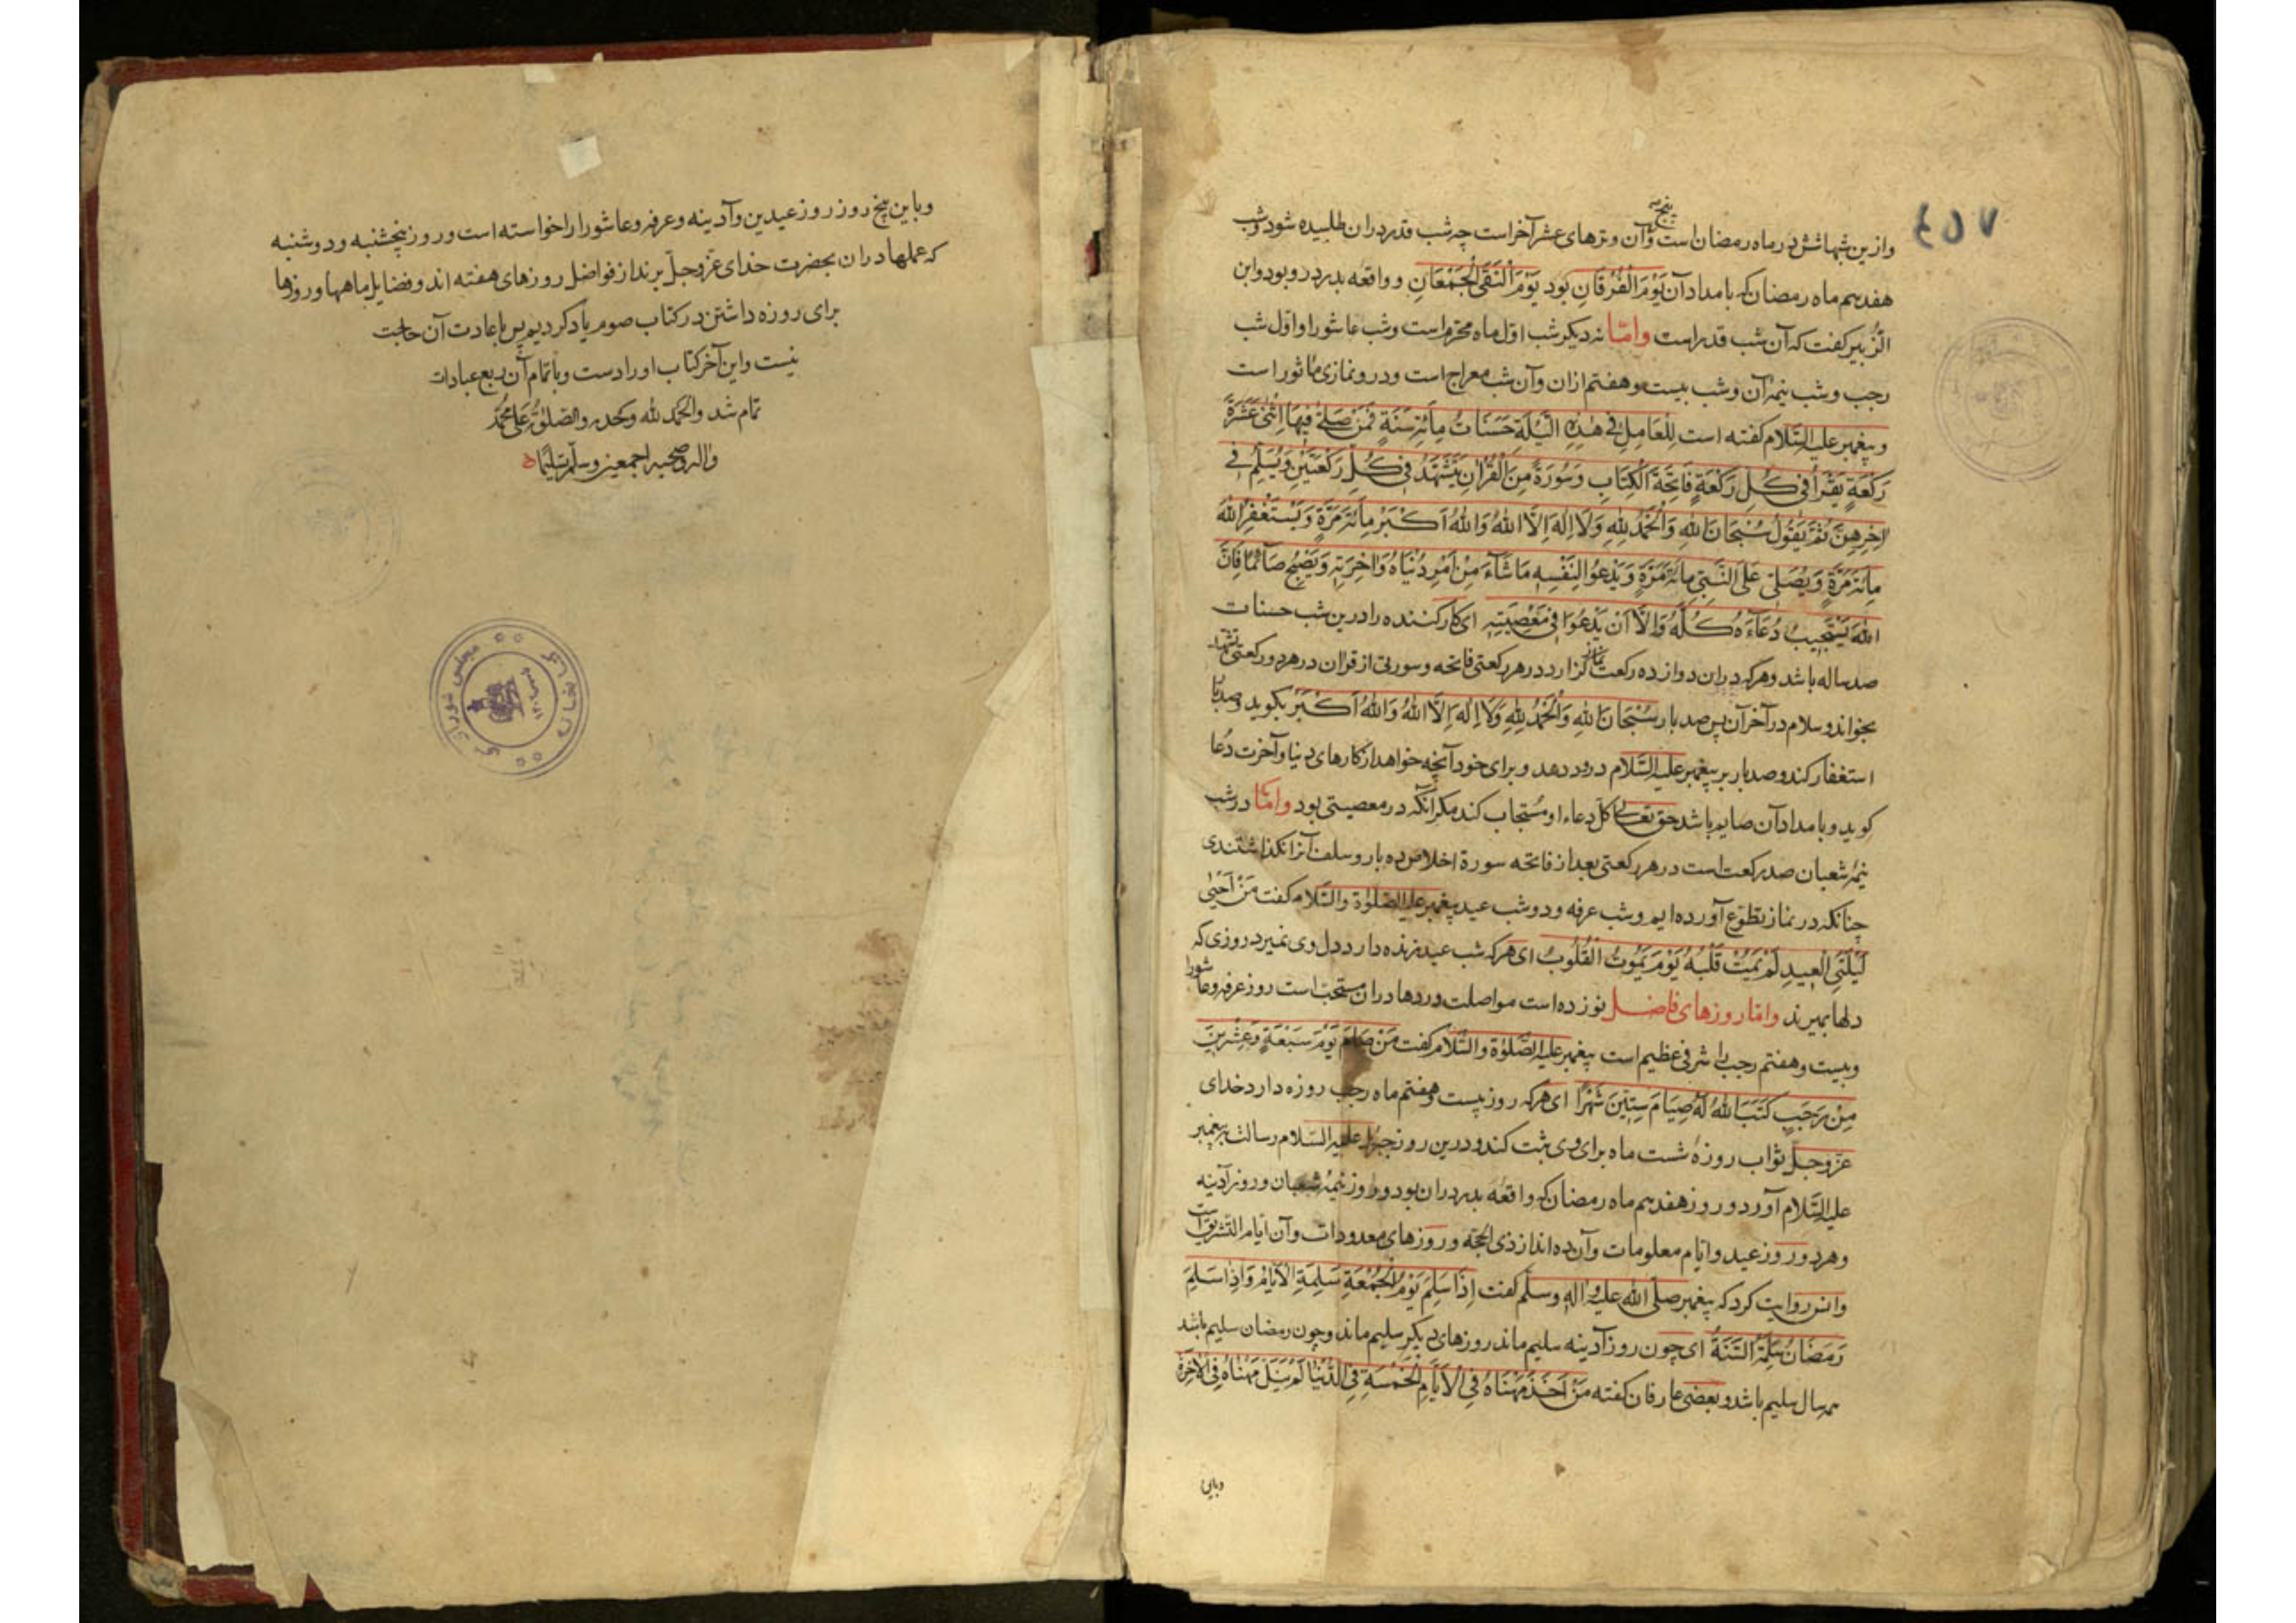 ۴۵۷
وازین شبها شش در ماه رمضان است پنج آن وترهای عشر آخر است چه شب قدر دران طلبیده شود و شب
هفدهم ماه رمضان که بامداد آن یَوْمَ الْفُرْقَانِ بود یَوْمَ الْتَقَی الْجَمْعَانِ و واقعه بدر درو بود و ابن
الزُّبیر گفت که آن شب قدر است وامّا نه دیگر شب اوّل ماه محرّم است و شب عاشورا و اوّل شب
رجب و شب نیمهٔ آن و شب بیست و هفتم ازان و آن شب معراج است و درو نمازی ماثور است
و پیغمبر علیه السّلام گفته است لِلْعَامِلِ فِی هٰذِهِ اللَّیْلَةِ حَسَنَاتُ مِائَةِ سَنَةٍ فَمَنْ صَلَّی فِیهَا اثْنَیْ عَشَرَةَ
رَکْعَةٍ یَقْرَأُ فِی کُلِّ رَکْعَةٍ فَاتِحَةَ الْکِتَابِ وَسُورَةً مِنَ الْقُرْاٰنِ یَتَشَهَّدُ فِی کُلِّ رَکْعَتَیْنِ وَیُسَلِّمُ فِی
اٰخِرِهِنَّ ثُمَّ یَقُولُ سُبْحَانَ اللهِ وَالْحَمْدُ لِلّٰهِ وَلَا اِلٰهَ اِلَّا اللهُ وَاللهُ اَکْبَرُ مِائَةَ مَرَّةٍ وَیَسْتَغْفِرُ اللهَ
مِائَةَ مَرَّةٍ وَیُصَلِّی عَلَی النَّبِیِّ مِائَةَ مَرَّةٍ وَیَدْعُو لِنَفْسِهِ مَا شَاءَ مِنْ اَمْرِ دُنْیَاهُ وَاٰخِرَتِهِ وَیُصْبِحُ صَائِمًا فَاِنَّ
اللهَ یَسْتَجِیبُ دُعَاءَهُ کُلَّهُ وَاِلَّا اَنْ یَدْعُوَا فِی مَعْصِیَتِهِ ای کار کننده را درین شب حسنات
صد ساله باشد و هرکه دران دوازده رکعت نماز گزارد در هر رکعتی فاتحه و سورتی از قران در هر دو رکعتی تشهد
بخواند و سلام در آخر آن پس صد بار سُبْحَانَ اللهِ وَالْحَمْدُ لِلّٰهِ وَلَا اِلٰهَ اِلَّا اللهُ وَاللهُ اَکْبَرُ بگوید و صد بار
استغفار کند و صد بار بر پیغمبر علیه السّلام درود دهد و برای خود آنچه خواهد از کارهای دنیا و آخرت دُعا
گوید و بامداد آن صایم باشد حق تعالی کل دعاء او مُستجاب کند مگر آنکه در معصیتی بود وامّا در شب
نیمهٔ شعبان صد رکعت است در هر رکعتی بعد از فاتحه سورة اخلاص ده بار و سلف آنرا نگذاشتندی
چنانکه در نماز تطوّع آورده‌ایم و شب عرفه و دو شب عید پیغمبر علیه الصّلوة والسّلام گفت مَنْ اَحْیٰی
لَیْلَتَیِ الْعِیدِ لَمْ یَمُتْ قَلْبُهُ یَوْمَ یَمُوتُ الْقُلُوبُ ای هرکه شب عید زنده دارد دل وی نمیرد روزی که
دلها بمیرند وامّا روزهای فاضل نوزده است مواصلت وردها دران مستحبّ است روز عرفه و عاشورا
و بیست و هفتم رجب را شرفی عظیم است پیغمبر علیه الصّلوة والسّلام گفت مَنْ صَامَ یَوْمَ سَبْعَةٍ وَعِشْرِینَ
مِنْ رَجَبٍ کَتَبَ اللهُ لَهُ صِیَامَ سِتِّینَ شَهْرًا ای هرکه روز بیست و هفتم ماه رجب روزه دارد خدای
عزّ وجلّ ثواب روزهٔ شست ماه برای وی ثبت کند و درین روز جبرئیل علیه السّلام رسالت بر پیغمبر
علیه السّلام آورد و روز هفدهم ماه رمضان که واقعهٔ بدر دران بود و روز نیمهٔ شعبان و روز آدینه
و هر دو روز عید و ایّام معلومات و آن ده اند از ذی الحجّه و روزهای معدودات و آن ایّام التّشریق است
و انس روایت کرد که پیغمبر صلّی الله علیه واله وسلّم گفت اِذَا سَلِمَ یَوْمُ الْجُمُعَةِ سَلِمَةِ الْاَیَّامُ وَاِذَا سَلِمَ
رَمَضَانُ سَلِمَةُ السَّنَةُ ای چون روز آدینه سلیم ماند روزهای دیگر سلیم ماند و چون رمضان سلیم باشد
همه سال سلیم باشد و بعضی عارفان گفته مَنْ اَخَذَ مَهْنَاهُ فِی الْاَیَّامِ الْخَمْسَةِ فِی الدُّنْیَا لَمْ یَنَلْ مَهْنَاهُ فِی الْاٰخِرَةِ
و باین
و باین پنج روز روز عیدین و آدینه و عرفه و عاشورا را خواسته است و روز پنجشنبه و دوشنبه
که عملها دران بحضرت خدای عزّ وجلّ برند از فواضل روزهای هفته اند و فضایل ماهها و روزها
برای روزه داشتن در کتاب صوم یاد کردیم پس باعادت آن حاجت
نیست و این آخر کتاب اوراد است و باتمام آن ربع عبادات
تمام شد والحمد لله وحده والصلوة علی محمّد
واله وصحبه اجمعین وسلّم تسلیمًا
کتابخانه مجلس شورای ملی